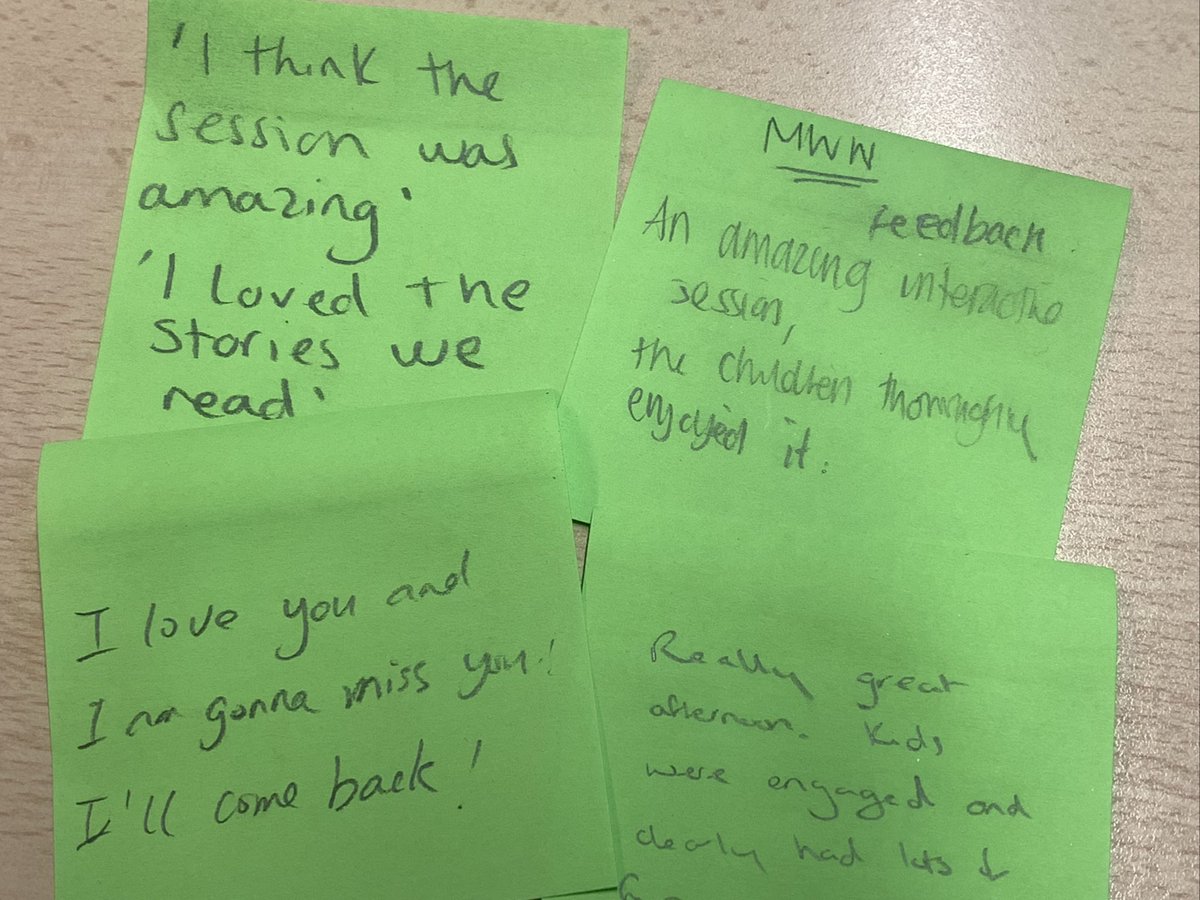 'I think the
session was
amazing'
'I loved the
stories we
read'
MWW
Feedback.
An amazing interactive
session,
the children thoroughly
enjoyed it.
I love you and
I am gonna miss you!
I'll come back!
Really great
afternoon. Kids
were engaged and
clearly had lots ↓